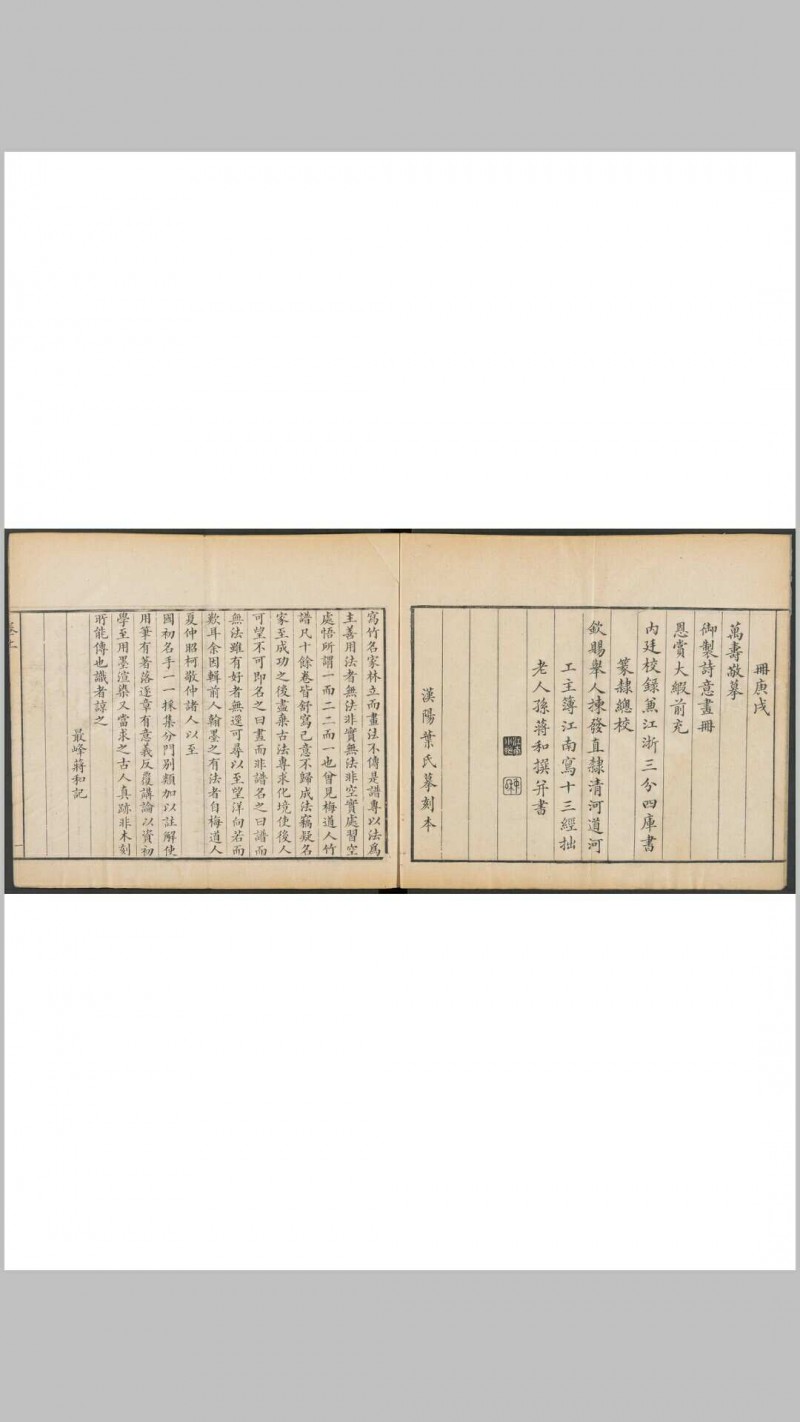 冊庚戌
萬壽敬摹
御製詩意畫冊
恩賞大緞前充
內廷校錄兼江浙三分四庫書
篆隸總校
欽賜舉人揀發直隸清河道河
工主簿江南寫十三經拙
老人孫蔣和撰并書
漢陽葉氏摹刻本
寫竹名家林立而畫法不傳是譜專以法爲
主善用法者無法非實無法非空實處習空
處悟所謂一而二二而一也曾見梅道人竹
譜凡十餘卷皆舒寫己意不歸成法竊疑名
家至成功之後盡棄古法專求化境使後人
可望不可即名之曰畫而非譜名之曰譜而
無法雖有好者無逕可尋以至望洋向若而
歎耳余因輯前人翰墨之有法者自梅道人
夏仲昭柯敬仲諸人以至
國初名手一一採集分門別類加以註解使
用筆有著落逐章有意義反覆講論以資初
學至用墨渲染又當求之古人真跡非木刻
所能傳也識者諒之
最峰蔣和記